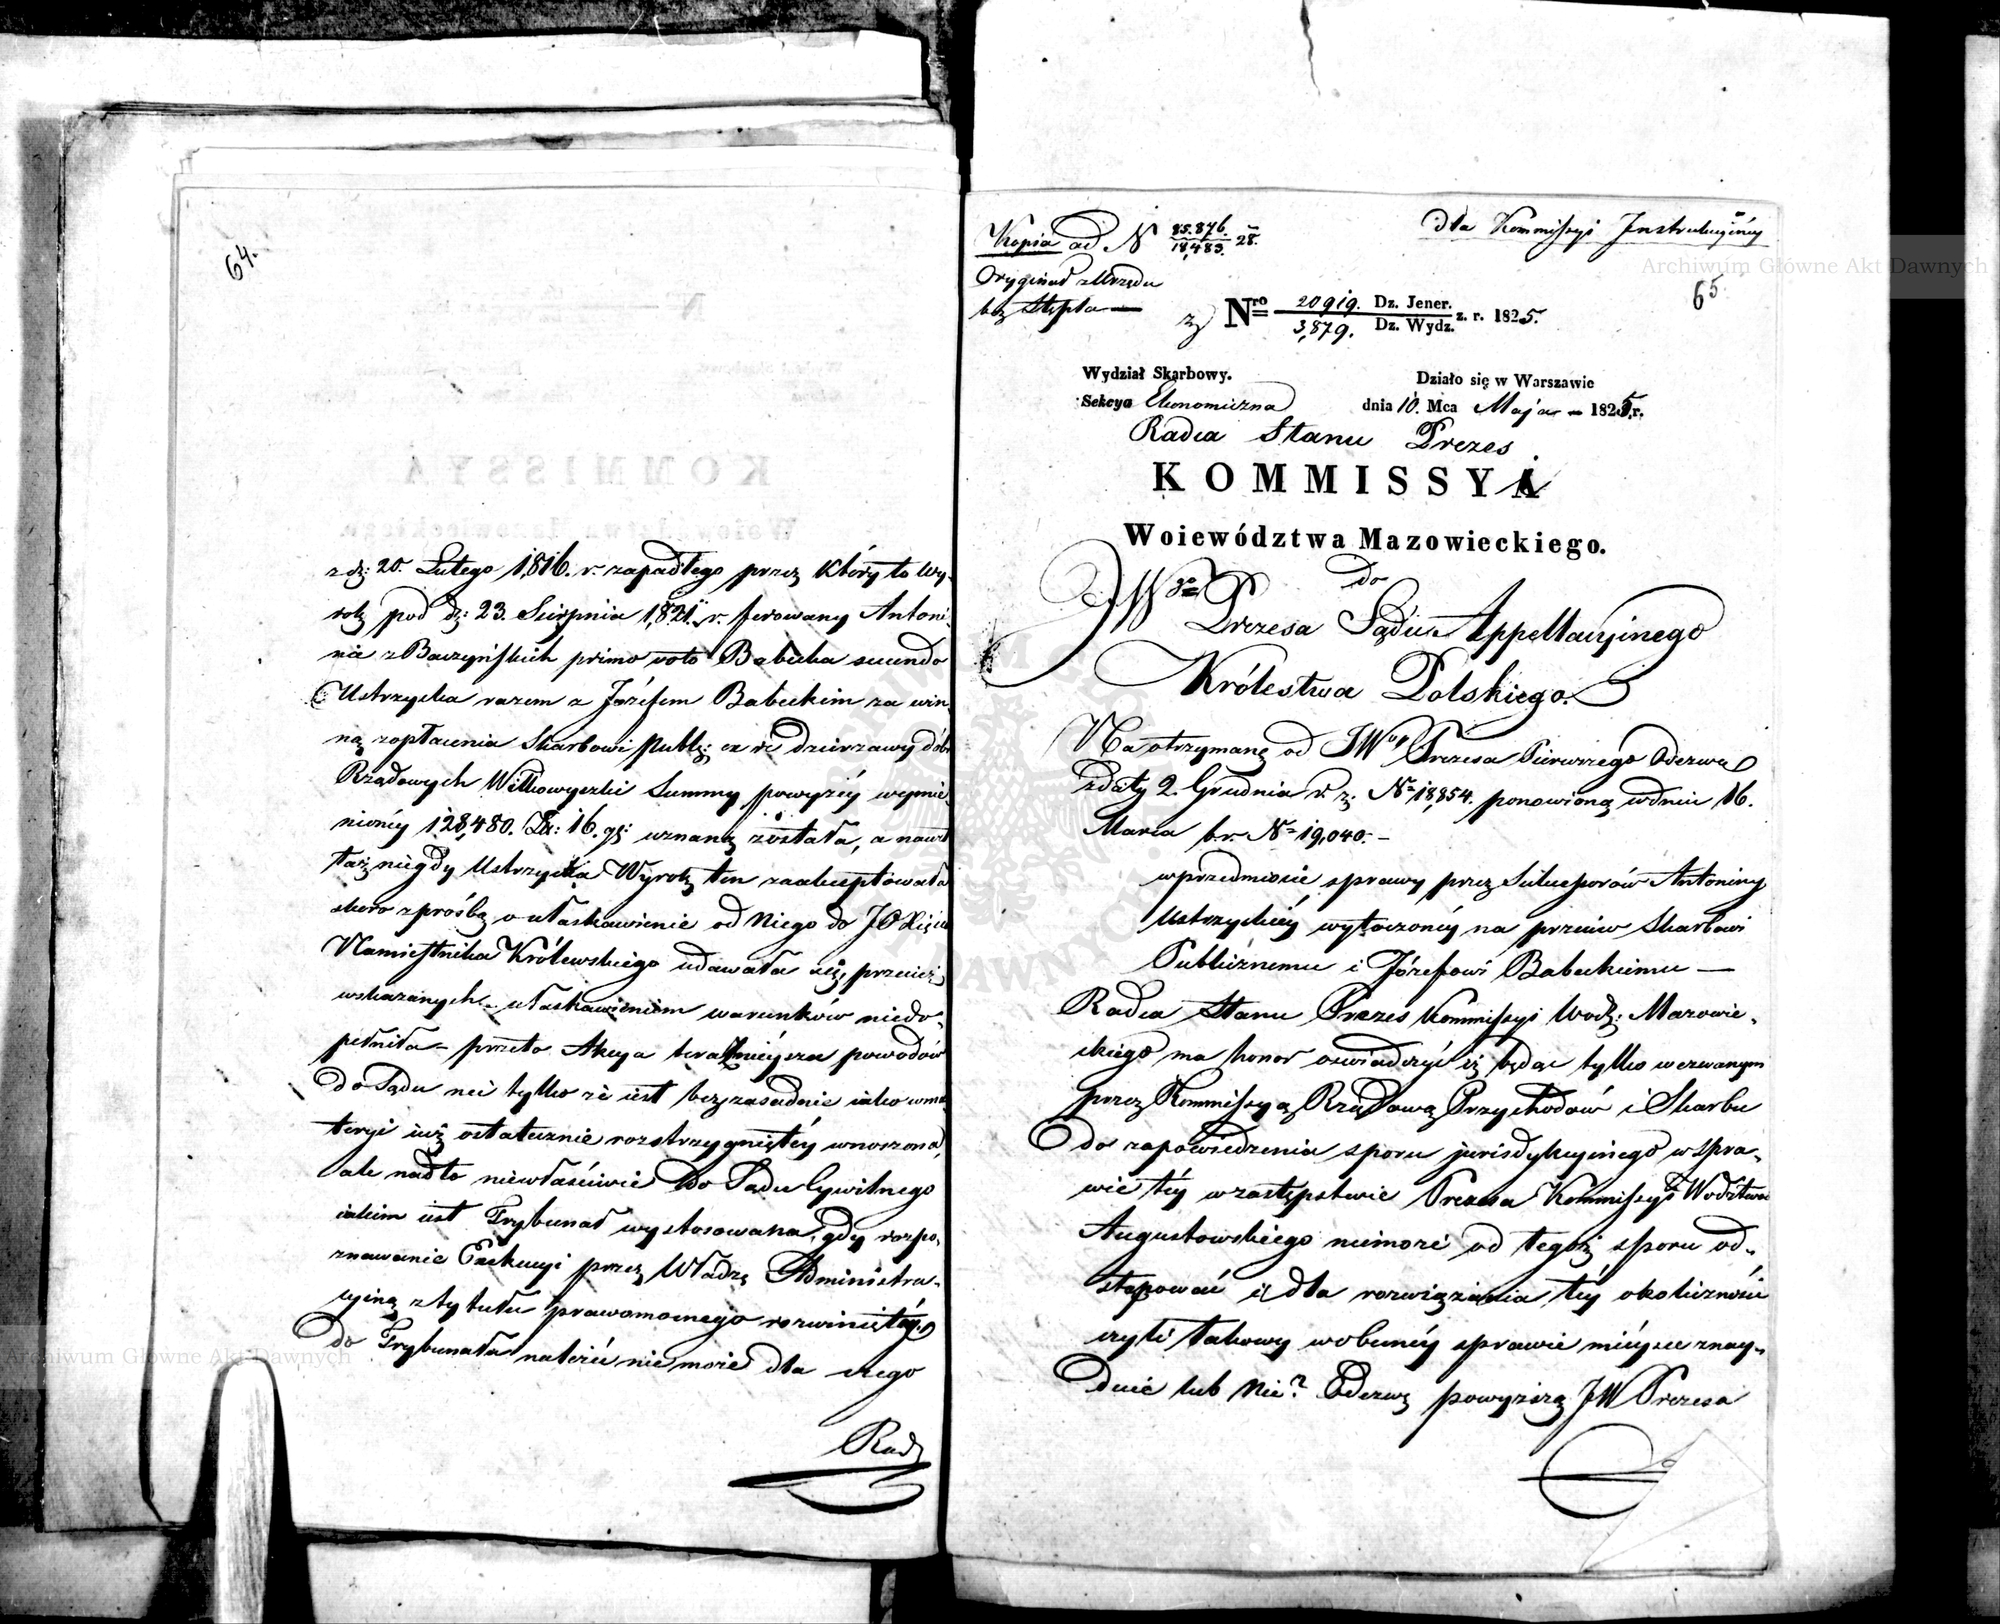 64.
z dz: 20. Lutego 1,816. r. zapadłego przez który to Wy-
rok pod dz: 23. Sierpnia 1,821. r. ferowany Antoni-
na z Baczyńskich primo voto Babecka secundo
Ustrzycka razem z Józefem Babeckim za win-
ną zapłacenia Skarbowi Publ: ex re dzierzawy dóbr
Rządowych Wiłkowyszki Summy powyżéy wymie-
nionéy 128,480. Zł: 16. gr: uznaną została, a nawet
taż niegdy Ustrzycka Wyrok ten zaakceptowała
skoro z prośbą o ułaskawienie od Niego do JO Xięcia
Namiestnika Królewskiego udawała się, przecież
wskazanych ułaskawieniem warunków niedo-
pełniła – przeto Akcya teraźnieysza powodów
do Sądu nie tylko że iest bezzasadnie iako w ma-
teryi iuż ostatecznie rozstrzygniętéy wnoszona,
ale nadto niewłaściwie do Sądu Cywilnego
iakim iest Trybunał wystosowana, gdy rozpo-
znawanie Exekucyi przez Władzę Administra-
cyiną z tytułu prawomocnego rozwiniętéy
do Trybunału należéć nie może dla czego
Rad
Kopia ad N 85.876./18,483. 28.
dla Kommissyi Instrukcyinéy
Oryginał z Urzędu
bez Stępla —
65.
z Nro 20919. Dz. Jener. / 3,879. Dz. Wydz. z. r. 1825.
Wydział Skarbowy.
Działo się w Warszawie
Sekcya Ekonomiczna
dnia 10. Mca Maja – 1825. r.
Radca Stanu Prezes
KOMMISSYi
Woiewództwa Mazowieckiego.
do
JWgo Prezesa Sądu Appellacyinego
Królestwa Polskiego.
Na otrzymaną od JWgo Prezesa Pierwszego Odezwę
z daty 2. Grudnia r. z. No 18,854. ponowioną w dniu 16.
Marca b.r. No 19,040. –
w przedmiocie sprawy przez Sukcessorów Antoniny
Ustrzyckiéy wytoczonéy na przeciw Skarbowi
Publicznemu i Józefowi Babeckiemu —
Radca Stanu Prezes Kommissyi Wodz: Mazowie-
ckiego ma honor oświadczyć iż będąc tylko wezwanym
przez Kommissyą Rządową Przychodów i Skarbu
do zapowiedzenia sporu jurisdykcyinego w spra-
wie téy w zastępstwie Prezesa Kommissyi Wodztwa
Augustowskiego niemoże od tegoż sporu od-
stępować i dla rozwiązania téy okoliczności
czyli takowy w obecnéy sprawie mieysce znay-
dzie lub Nie? Odezwę powyższą JW Prezesa
Archiwum Główne Akt Dawnych
Archiwum Główne Akt Dawnych